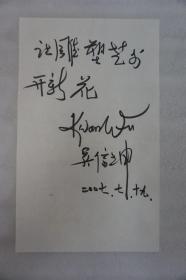 让雕塑艺术
开新花
吴信坤
二〇〇七.七.十九.